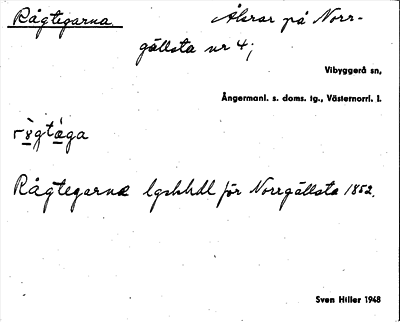 Rågtegarna Åkrar på Norr-
gällsta nr 4;
Vibyggerå sn,
Ångermanl. s. doms. tg., Västernorrl. l.
Rågtegarna lgskhdl för Norrgällsta 1852.
Sven Hiller 1948